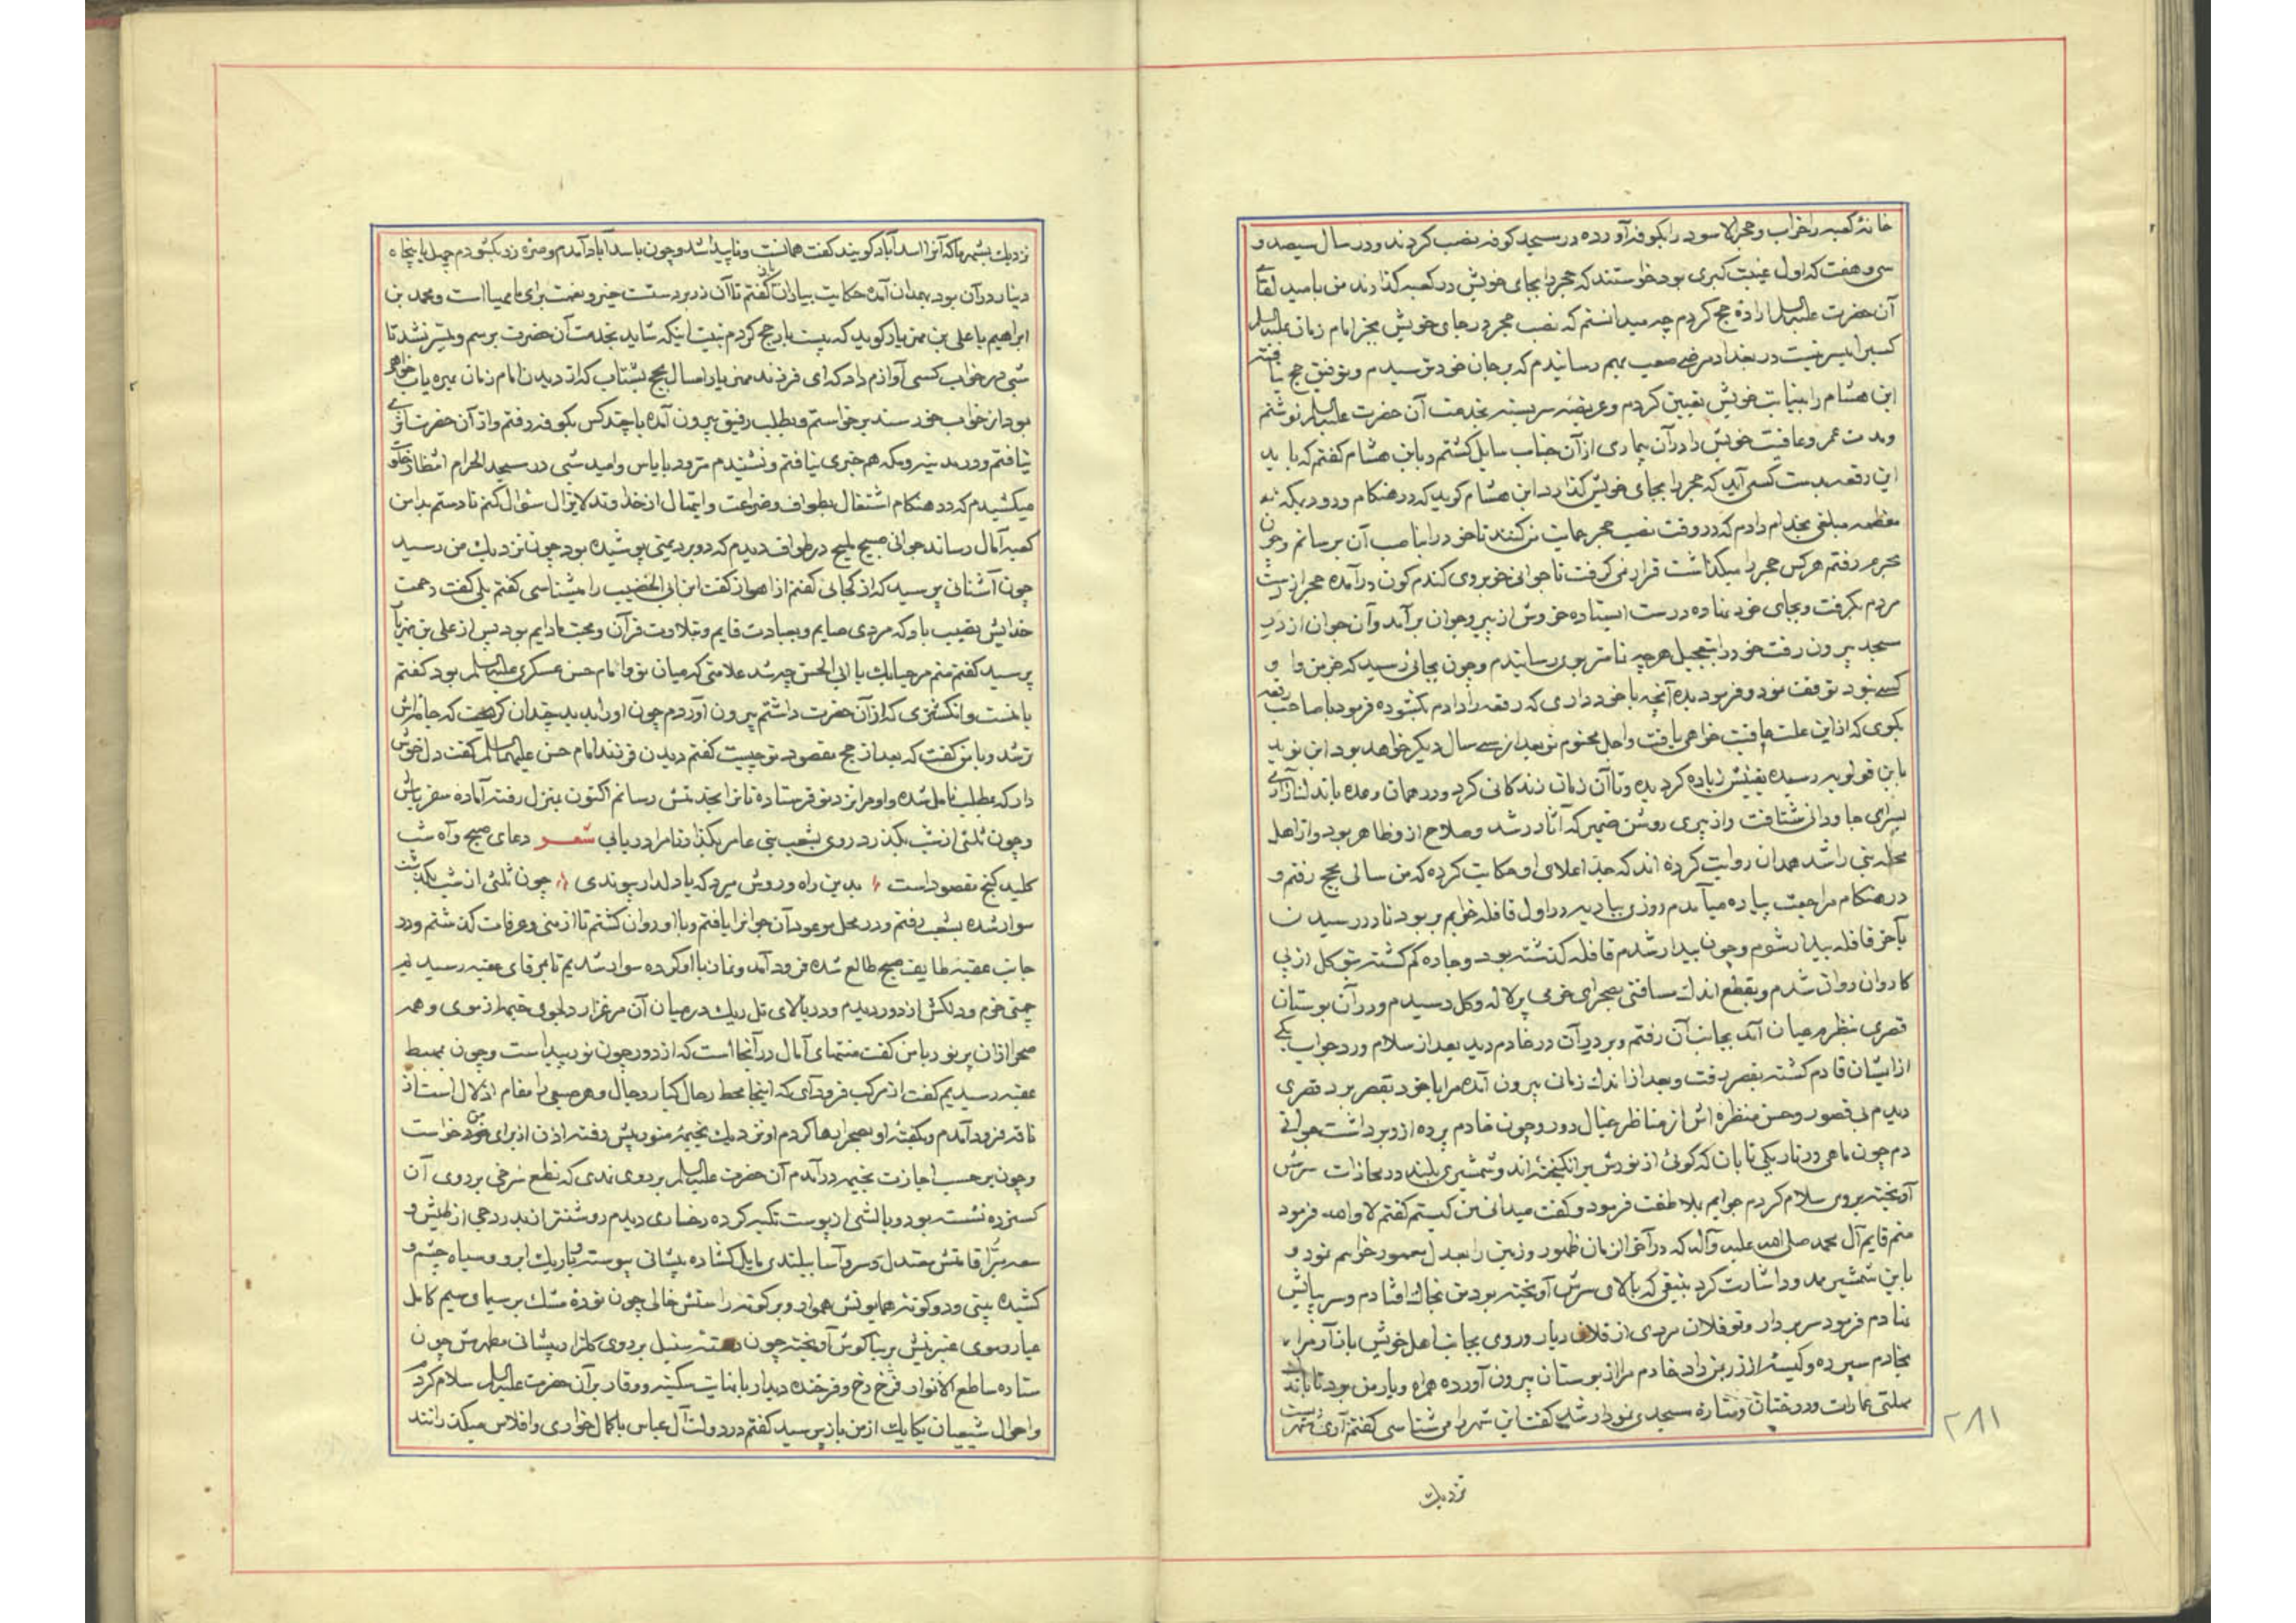 خانهٔ کعبه را خراب و حجرالاسود را بکوفه آورده در مسجد کوفه نصب کردند و در سال سیصد و
سی و هفت که اول غیبت کبری بود خواستند که حجر را بجای خویش در کعبه گذارند من بامید لقای
آن حضرت علیه السلم اراده حج کردم چه میدانستم که نصب حجر در جای خویش بجز امام زمان علیه السلم
کسیرا میسر نیست در بغداد مرضی صعب بهم رسانیدم که بر جان خود ترسیدم و توفیق حج نیافته
ابن هشام را بنیابت خویش تعیین کردم و عریضه سربسته بخدمت آن حضرت علیه السلم نوشتم
و مدت عمر و عافیت خویش را در آن بیماری از آن جناب سایل گشتم و بابن هشام گفتم که باید
این رقعه بدست کسی آید که حجر را بجای خویش گذارد ابن هشام گوید که در هنگام ورود بمکه
معظمه مبلغی بخدام دادم که در وقت نصب حجر حمایت من کنند تا خود را بناصب آن برسانم و چون
بحرم رفتم هر کس حجر را میگذاشت قرار نمی گرفت تا جوانی خوبروی گندم کون درآمده حجر از دست
مردم بگرفت و بجای خود نهاده درست ایستاده خروش از پیر و جوان برآمد و آن جوان از در
مسجد بیرون رفت خود را بتعجیل هر چه تمامتر بوی رسانیدم و چون بجائی رسید که جز من و او
کسی نبود توقف نمود و فرمود بده آنچه با خود داری که رقعه را دادم نگشوده فرمود با صاحب رقعه
بگوی که از این علت عافیت خواهی یافت و اجل محتوم تو بعد از سی سال دیگر خواهد بود این نوید
بابن قولویه رسیده یقینش زیاده گردیده و تا آن زمان زندگانی کرد و در همان وعده
بسرای جاودانی شتافت و از پیری روشن ضمیر که آثار رشد و صلاح از و ظاهر بود و از اهل
محله بنی راشد همدان روایت کرده اند که جد اعلای او حکایت کرده که من سالی بحج رفتم و
در هنگام مراجعت پیاده میآمدم روزی ببادیه در اول قافله خوابم بر بود تا در رسیدن
بآخر قافله بیدار شوم و چون بیدار شدم قافله گذشته بود و جاده گم گشته از پی
کاروان روان شدم و بقطع اندک مسافتی بصحرای خرمی پر لاله و گل رسیدم و در آن بوستان
قصری بنظرم عیان آمد بجانب آن رفتم و بر در آن دو خادم دید بعد از سلام و رد جواب یکی
از ایشان قادم گشته بقصر رفت و بعد از اندک زمانی بیرون آمده مرا با خود بقصر برد قصری
دیدم بی قصور و حسن منظره اش از مناظر خیال دور و چون خادم پرده از در برداشت جوانی
دیدم چون ماهی در تاریکی تابان که گوئی از نورش برانگیخته اند و شمشیری بلند در محاذات سرش
آویخته بر وی سلام کردم جوابم بملاطفت فرمود و گفت میدانی من کیستم گفتم لا والله فرمود
منم قایم آل محمد صلی الله علیه و آله که در آخر الزمان ظهور و زمین را بعدل معمور خواهم نمود و
باین شمشیر و اشارت کرد بتیغی که بالای سرش آویخته بود من بخاک افتادم و سر بپایش
نهادم فرمود سر بردار و تو فلان مردی از فلان دیار و روی بجانب اهل خویش باز آر مرا
بخادم سپرده و کیسه از زر بمن داد خادم مرا از بوستان بیرون آورده همراه و یار من بود تا باندک
مهلتی عمارات و درختان و مناره مسجدی نمودار شد گفت این شهر را می شناسی گفتم آری
نزدیک
۲۸۱
نزدیک بشهر ما که آنرا اسدآباد گویند گفت همانست و ناپیدا شد و چون باسدآباد آمدم و صره زر بگشودم چهل یا پنجاه
دینار در آن بود بهمدان آمده حکایت بیاران باز گفتم تا آن زر بر دست خیر و نعمت برای ما مهیا است و محمد بن
ابراهیم یا علی بن مهزیار گوید که بیست بار حج کردم بنیت اینکه شاید بخدمت آن حضرت برسم و میسر نشد تا
شبی در خواب کسی آوازم داد که ای فرزند مهزیار امسال بحج بشتاب که از دیدن امام زمان بهره یاب خواهی
بود از خواب خورسند برخواستم و بطلب رفیق بیرون آمده با چند کس بکوفه رفتم و از آن حضرت اثری
نیافتم و در مدینه و مکه هم خبری نیافتم و نشنیدم متردد با یاس و امید شبی در مسجد الحرام انتظار خلوت
میکشیدم که در هنگام اشتغال بطواف و ضراعت و ابتهال از خداوند لایزال سئوال کنم تا دستم بدامن
کعبه آمال رساند جوانی صبیح ملیح در طواف دیدم که دو برد یمنی پوشیده بود چون نزدیک من رسید
چون آشنائی پرسید که از کجائی گفتم از اهواز گفت ابن ابی الخضیب را میشناسی گفتم بلی گفت رحمت
خدایش نصیب باد که مردی صایم و بعبادت قایم و بتلاوت قرآن و محبت ما دایم بود پس از علی بن مهزیار
پرسید گفتم منم مرحبا بک یا ابی الحسن چه شد علامتی که میان تو و امام حسن عسکری علیه السلم بود گفتم
با منست و انگشتری که از آن حضرت داشتم بیرون آوردم چون او را بدید چندان گریست که جامه اش
تر شد و با من گفت که بعد از حج مقصود تو چیست گفتم دیدن فرزند امام حسن علیهما السلم گفت دل خوش
دار که مطلب حاصل شده و او مرا نزد تو فرستاده تا ترا بخدمتش رسانم اکنون بمنزل رفته آماده سفر باش
و چون ثلثی از شب بگذرد روی بشعب بنی عامر بگذار تا مرا دریابی شعر دعای صبح و آه شب
کلید گنج مقصود است بدین راه و روش میرو که با دلدار پیوندی چون ثلثی از شب بگذشت
سوار شده بشعب رفتم و در محل موعود آن جوانرا یافتم و با او روان گشتم تا از منی و عرفات گذشتم و در
جانب عقبه طایف صبح طالع شده فرود آمد و نماز با او کرده سوار شدیم تا بر قفای عقبه رسیدیم
چمنی خرم و دلکش از دور دیدم و در بالای تل ریک در میان آن مرغزار دلجوی خیمه از موی و همه
صحرا از ان پر نور با من گفت منتهای آمال در آنجا است که از دور چون نور پیداست و چون بمهبط
عقبه رسیدیم گفت از مرکب فرود آی که اینجا محط رحال کبار رجال و هر صعبی را مقام اذلال است از
ناقه فرود آمدم و بگفته او بصحرا رها کردم او نزدیک بخیمه منور پیش رفته اذن از برای من درخواست
و چون بر حسب اجازت بخیمه درآمدم آن حضرت علیه السلم بر روی نمدی که نطع سرخی بر روی آن
گسترده نشسته بود و بالشی از پوست تکیه کرده رخساری دیدم روشنتر از بدر دجی از طیش و
سفه مبرا قامتش معتدل و سرو آسا ببلندی مایل گشاده پیشانی پیوسته و باریک ابرو و سیاه چشم و
کشیده بینی و دو گونه همایونش هموار و بر گونه راستش خالی چون نوده مشک بر سیما و سیم کامل
عیار و موی عنبرینش بر بناگوش آویخته چون دسته سنبل بر روی گلزار پیشانی مطهرش چون
ستاره ساطع الانوار فرخ رخ و فرخنده دیدار با نهایت سکینه و وقار بر آن حضرت علیه السلم سلام کردم
و احوال شیعیان یکایک از من باز پرسید گفتم در دولت آل عباس با کمال خواری و افلاس میگذرانند